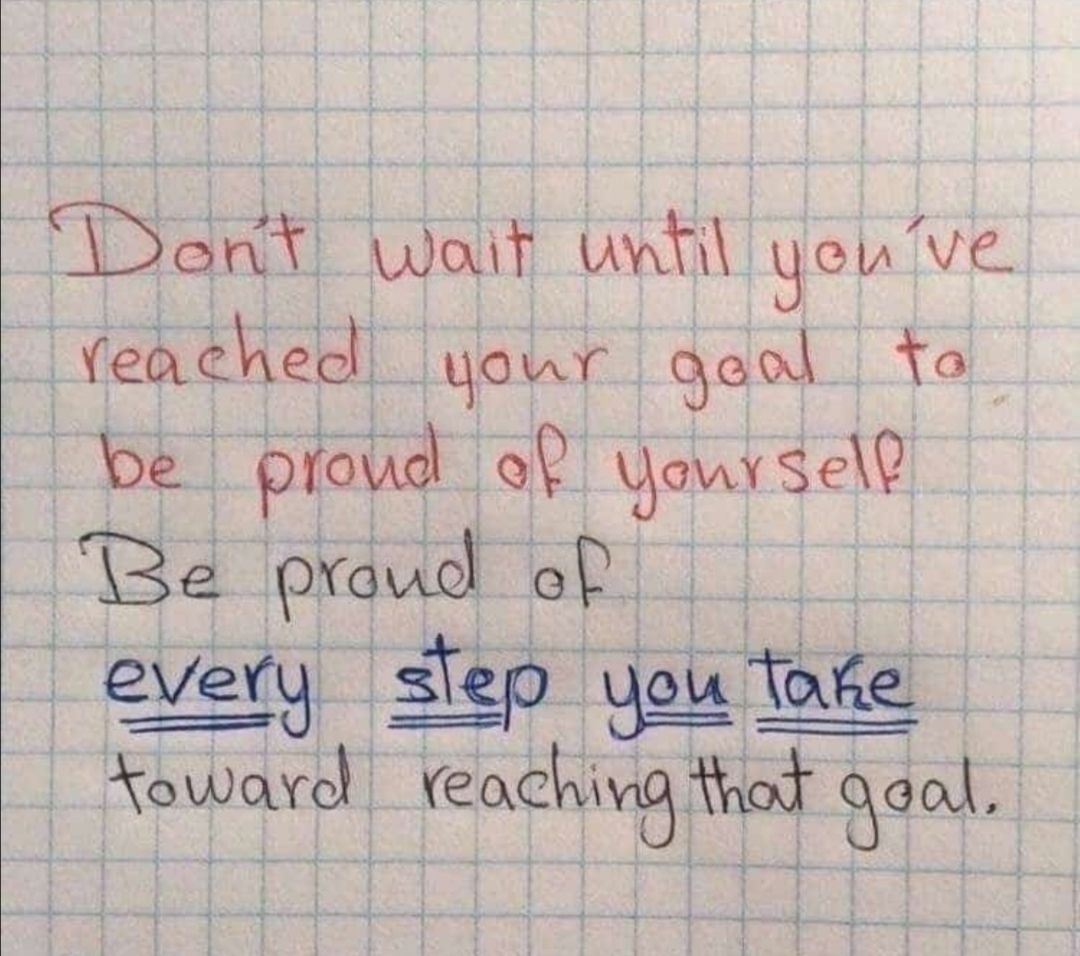 Don't wait until you've
reached your goal to
be proud of yourself
Be proud of
every step you take
toward reaching that goal.